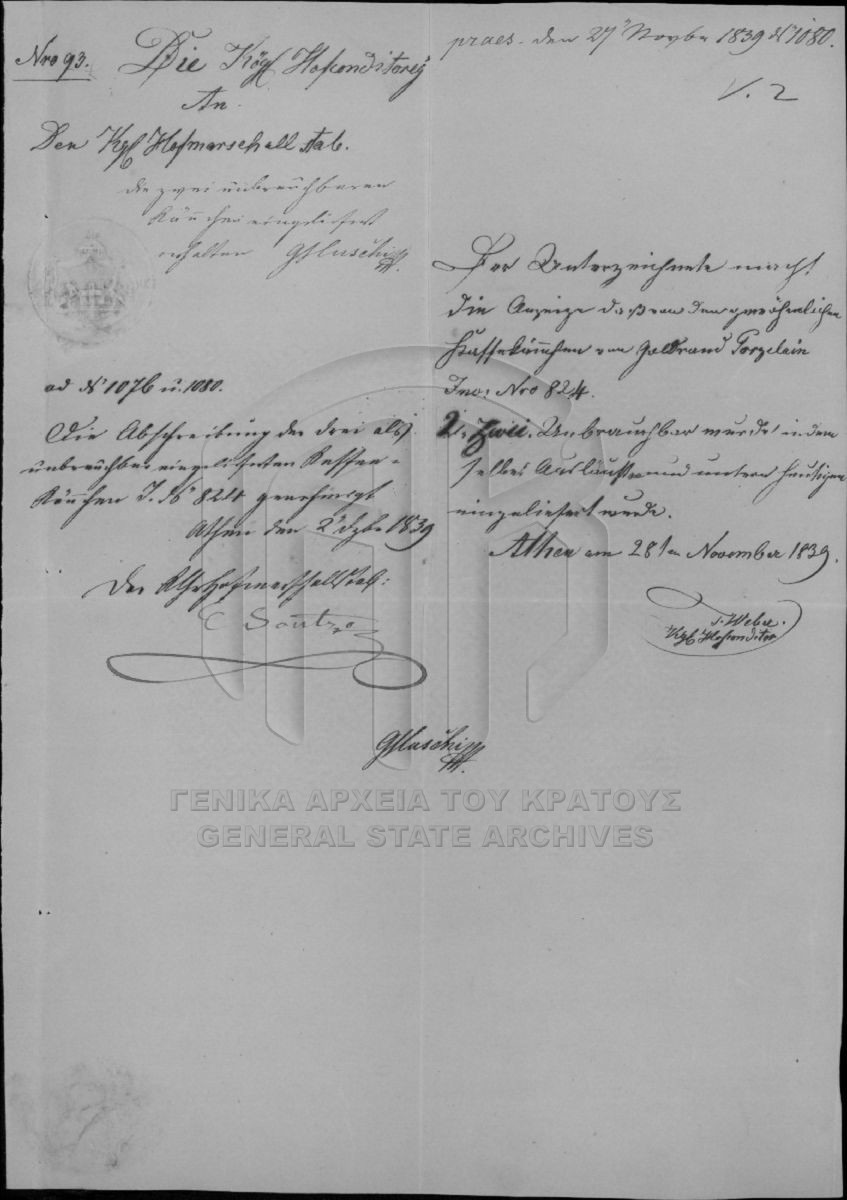 praes. den 27 Novbr 1839 No 1080.
V. 2
Nro 93.
Die Kögl Hofconditorey
An
Den Kgl Hofmarschall stab.
die zwei unbrauchbaren
Kännchen eingeliefert
erhalten
ad No 1076 u. 1080.
Die Abschreibung der drei als
unbrauchbar eingelieferten Kaffee-
Kännchen J. No 824 genehmigt
Athen den 2 Dzbr 1839
Das Hofmarschallstab:
C Soutzo
Der Unterzeichnete macht
die Anzeige daß von den gewöhnlichen
Kaffekännchen von Goldrand Porzelain
Inv: Nro 824.
2. Zwei. Unbrauchbar wurde in dem
selbes und untern heutigen
eingeliefert wurde.
Athen am 28ten November 1839.
J. Weber.
Kgl Hofconditor
ΓΕΝΙΚΑ ΑΡΧΕΙΑ ΤΟΥ ΚΡΑΤΟΥΣ
GENERAL STATE ARCHIVES